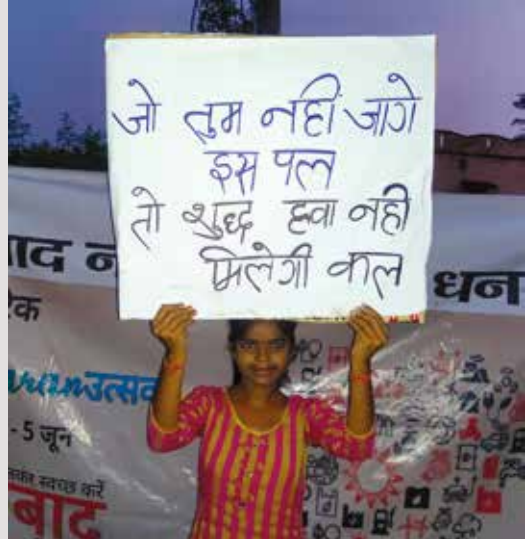 जो तुम नहीं जागे
इस पल
तो शुद्ध हवा नही
मिलेगी कल
धन
उत्सव
- 5 जून
स्वच्छ करें
बाद